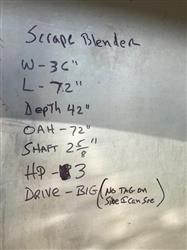 Scrape Blender
W - 36"
L - 72"
Depth 42"
OAH - 72"
SHAFT 2 5/8"
HP - 3
DRIVE - BIG (NO TAG ON
Side I Can See)